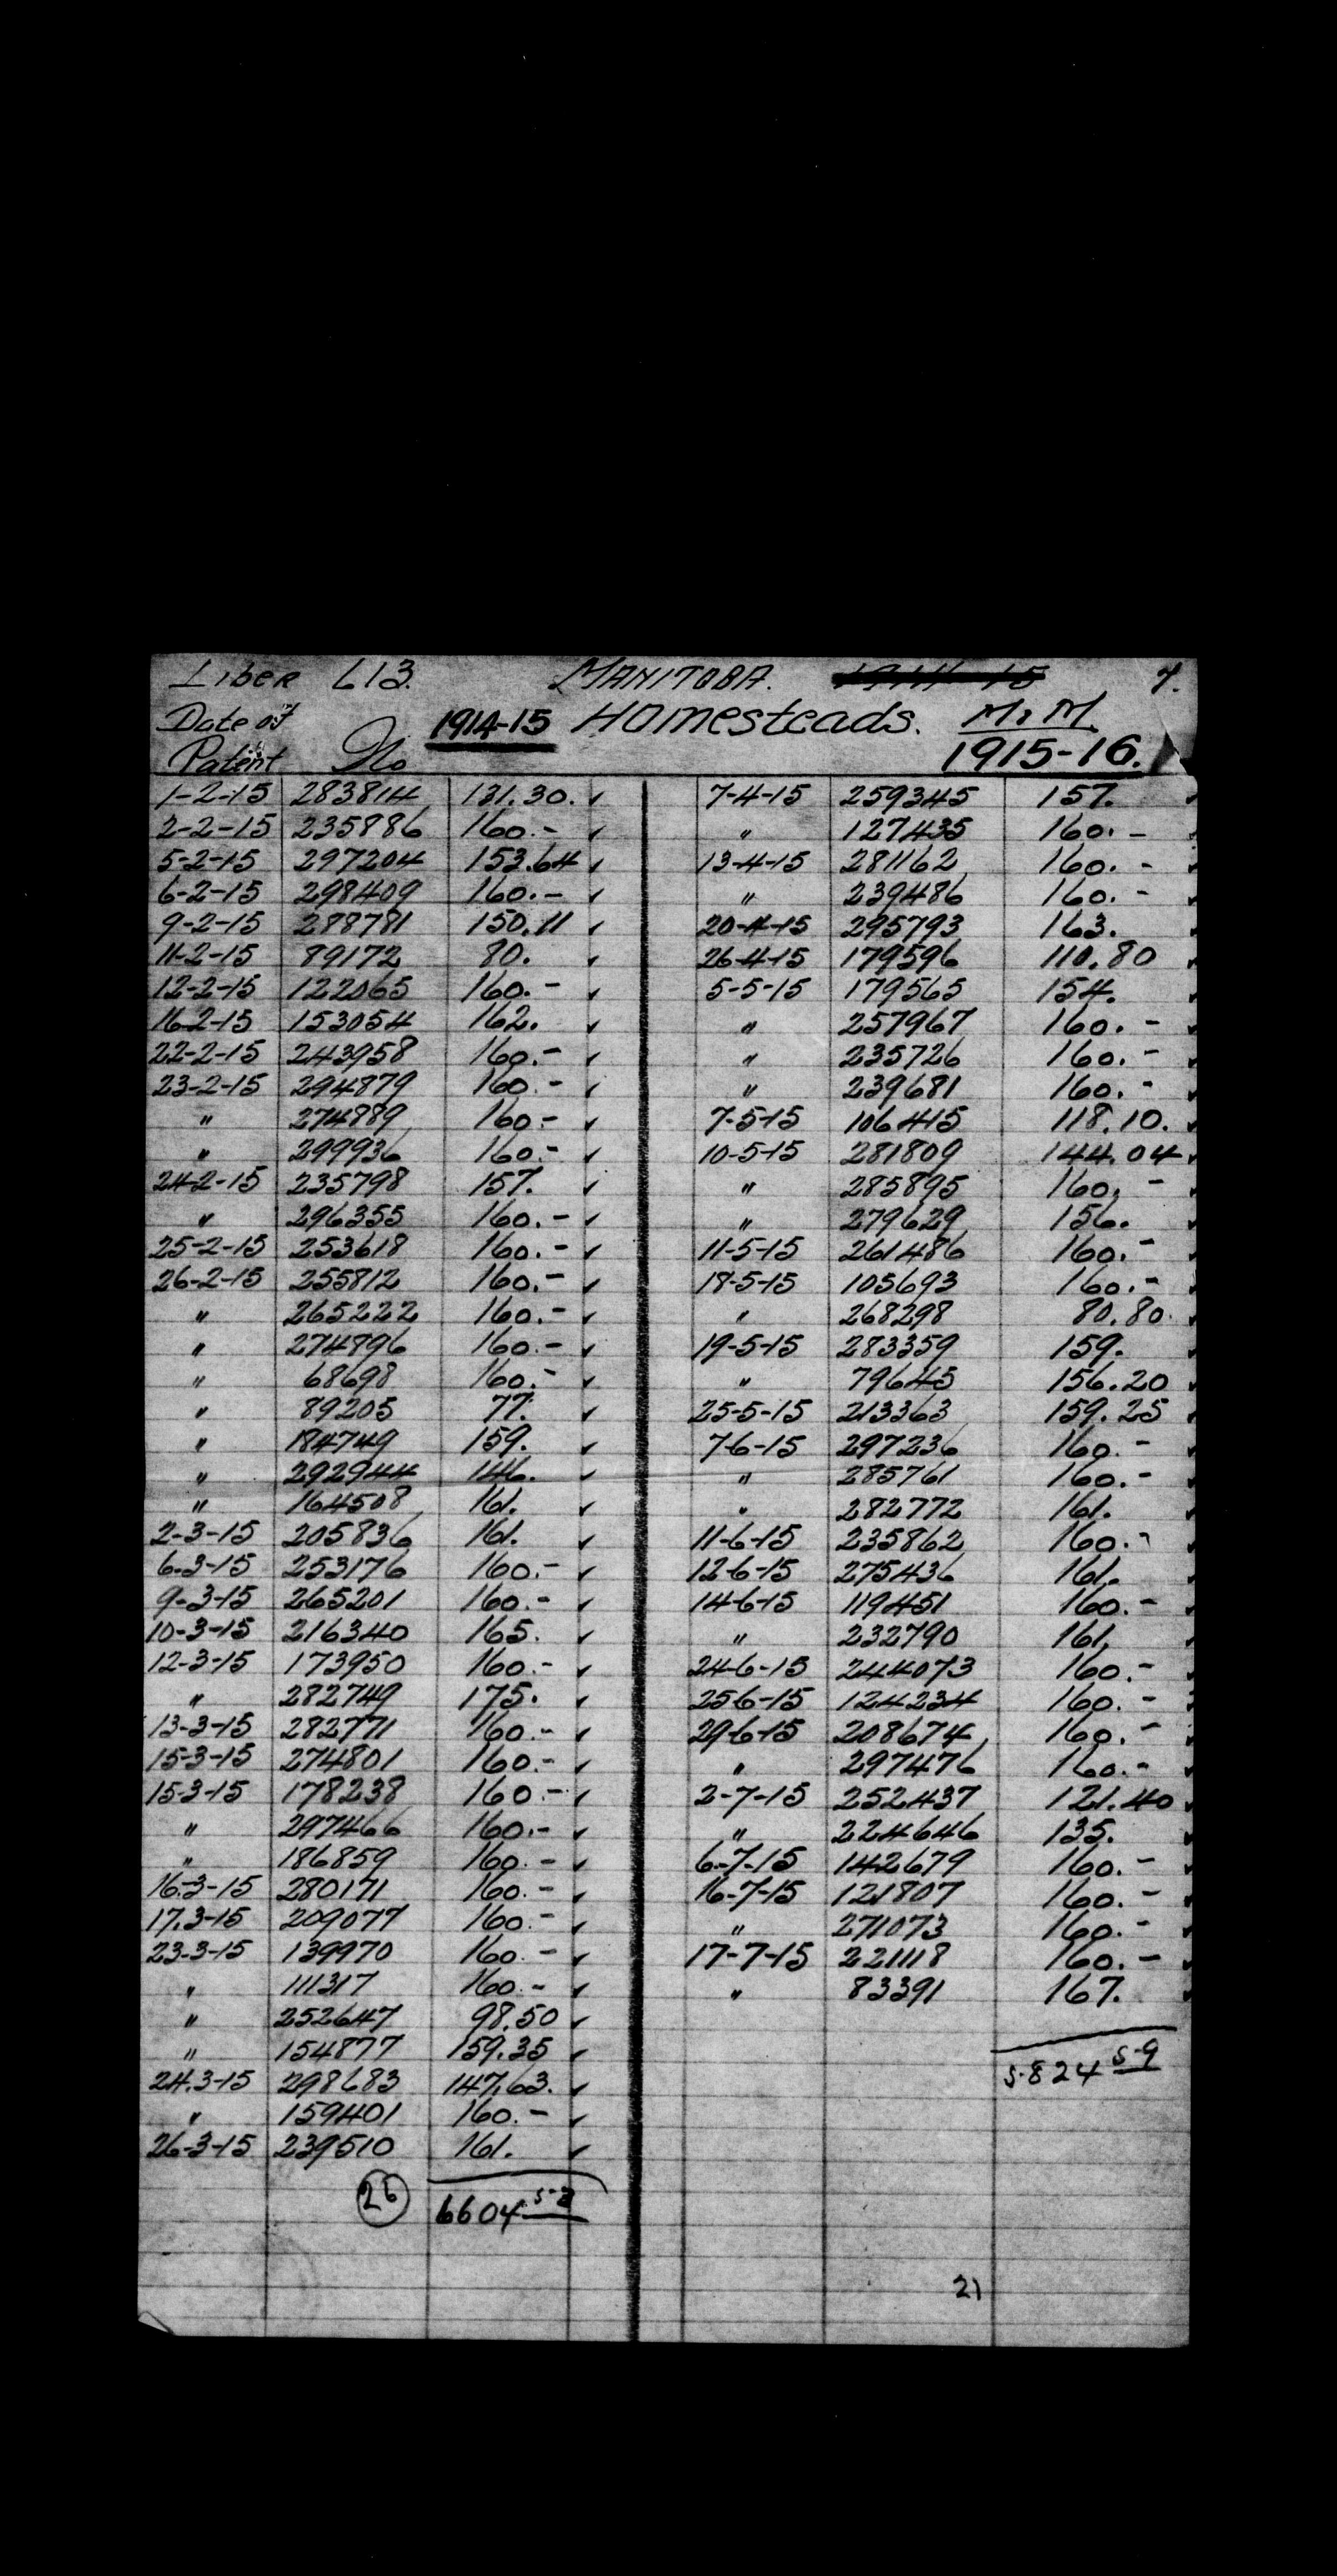 Liber 613. MANITOBA. 1914-15 7.
Date of 1914-15 Homesteads. M.M
Patent No 1915-16.
1-2-15 283814 131.30. ✓ 7-4-15 259345 157. ✓
2-2-15 235886 160.- ✓ " 127435 160.- ✓
5-2-15 297204 153.64 ✓ 13-4-15 281162 160.- ✓
6-2-15 298409 160.- ✓ " 239486 160.- ✓
9-2-15 288781 150.11 ✓ 20-4-15 295793 163. ✓
11-2-15 89172 80. ✓ 26-4-15 179596 110.80 ✓
12-2-15 122065 160.- ✓ 5-5-15 179565 154. ✓
16-2-15 153054 162. ✓ " 257967 160.- ✓
22-2-15 243958 160.- ✓ " 235726 160.- ✓
23-2-15 294879 160.- ✓ " 239681 160.- ✓
" 274889 160.- ✓ 7-5-15 106415 118.10. ✓
" 299936 160.- ✓ 10-5-15 281809 144.04 ✓
24-2-15 235798 157. ✓ " 285895 160.- ✓
" 296355 160.- ✓ " 279629 156. ✓
25-2-15 253618 160.- ✓ 11-5-15 261486 160.- ✓
26-2-15 255812 160.- ✓ 18-5-15 105693 160.- ✓
" 265222 160.- ✓ " 268298 80.80. ✓
" 274896 160.- ✓ 19-5-15 283359 159. ✓
" 68698 160.- ✓ " 79645 156.20 ✓
" 89205 77. ✓ 25-5-15 213363 159.25 ✓
" 184749 159. ✓ 7-6-15 297236 160.- ✓
" 292944 146. ✓ " 285761 160.- ✓
" 164508 161. ✓ " 282772 161. ✓
2-3-15 205836 161. ✓ 11-6-15 235862 160.- ✓
6-3-15 253176 160.- ✓ 12-6-15 275436 161. ✓
9-3-15 265201 160.- ✓ 14-6-15 119451 160.- ✓
10-3-15 216340 165. ✓ " 232790 161. ✓
12-3-15 173950 160.- ✓ 24-6-15 244073 160.- ✓
" 282749 175. ✓ 25-6-15 124234 160.- ✓
13-3-15 282771 160.- ✓ 29-6-15 208674 160.- ✓
15-3-15 274801 160.- ✓ " 297476 160.- ✓
15-3-15 178238 160.- ✓ 2-7-15 252437 121.40 ✓
" 297466 160.- ✓ " 224646 135. ✓
" 186859 160.- ✓ 6-7-15 142679 160.- ✓
16-3-15 280171 160.- ✓ 16-7-15 121807 160.- ✓
17.3-15 209077 160.- ✓ " 271073 160.- ✓
23-3-15 139970 160.- ✓ 17-7-15 221118 160.- ✓
" 111317 160.- ✓ " 83391 167. ✓
" 252647 98.50 ✓
" 154877 159.35 ✓ 5824 59
24.3-15 298683 147.63. ✓
" 159401 160.- ✓
26-3-15 239510 161. ✓
26 6604 53
21